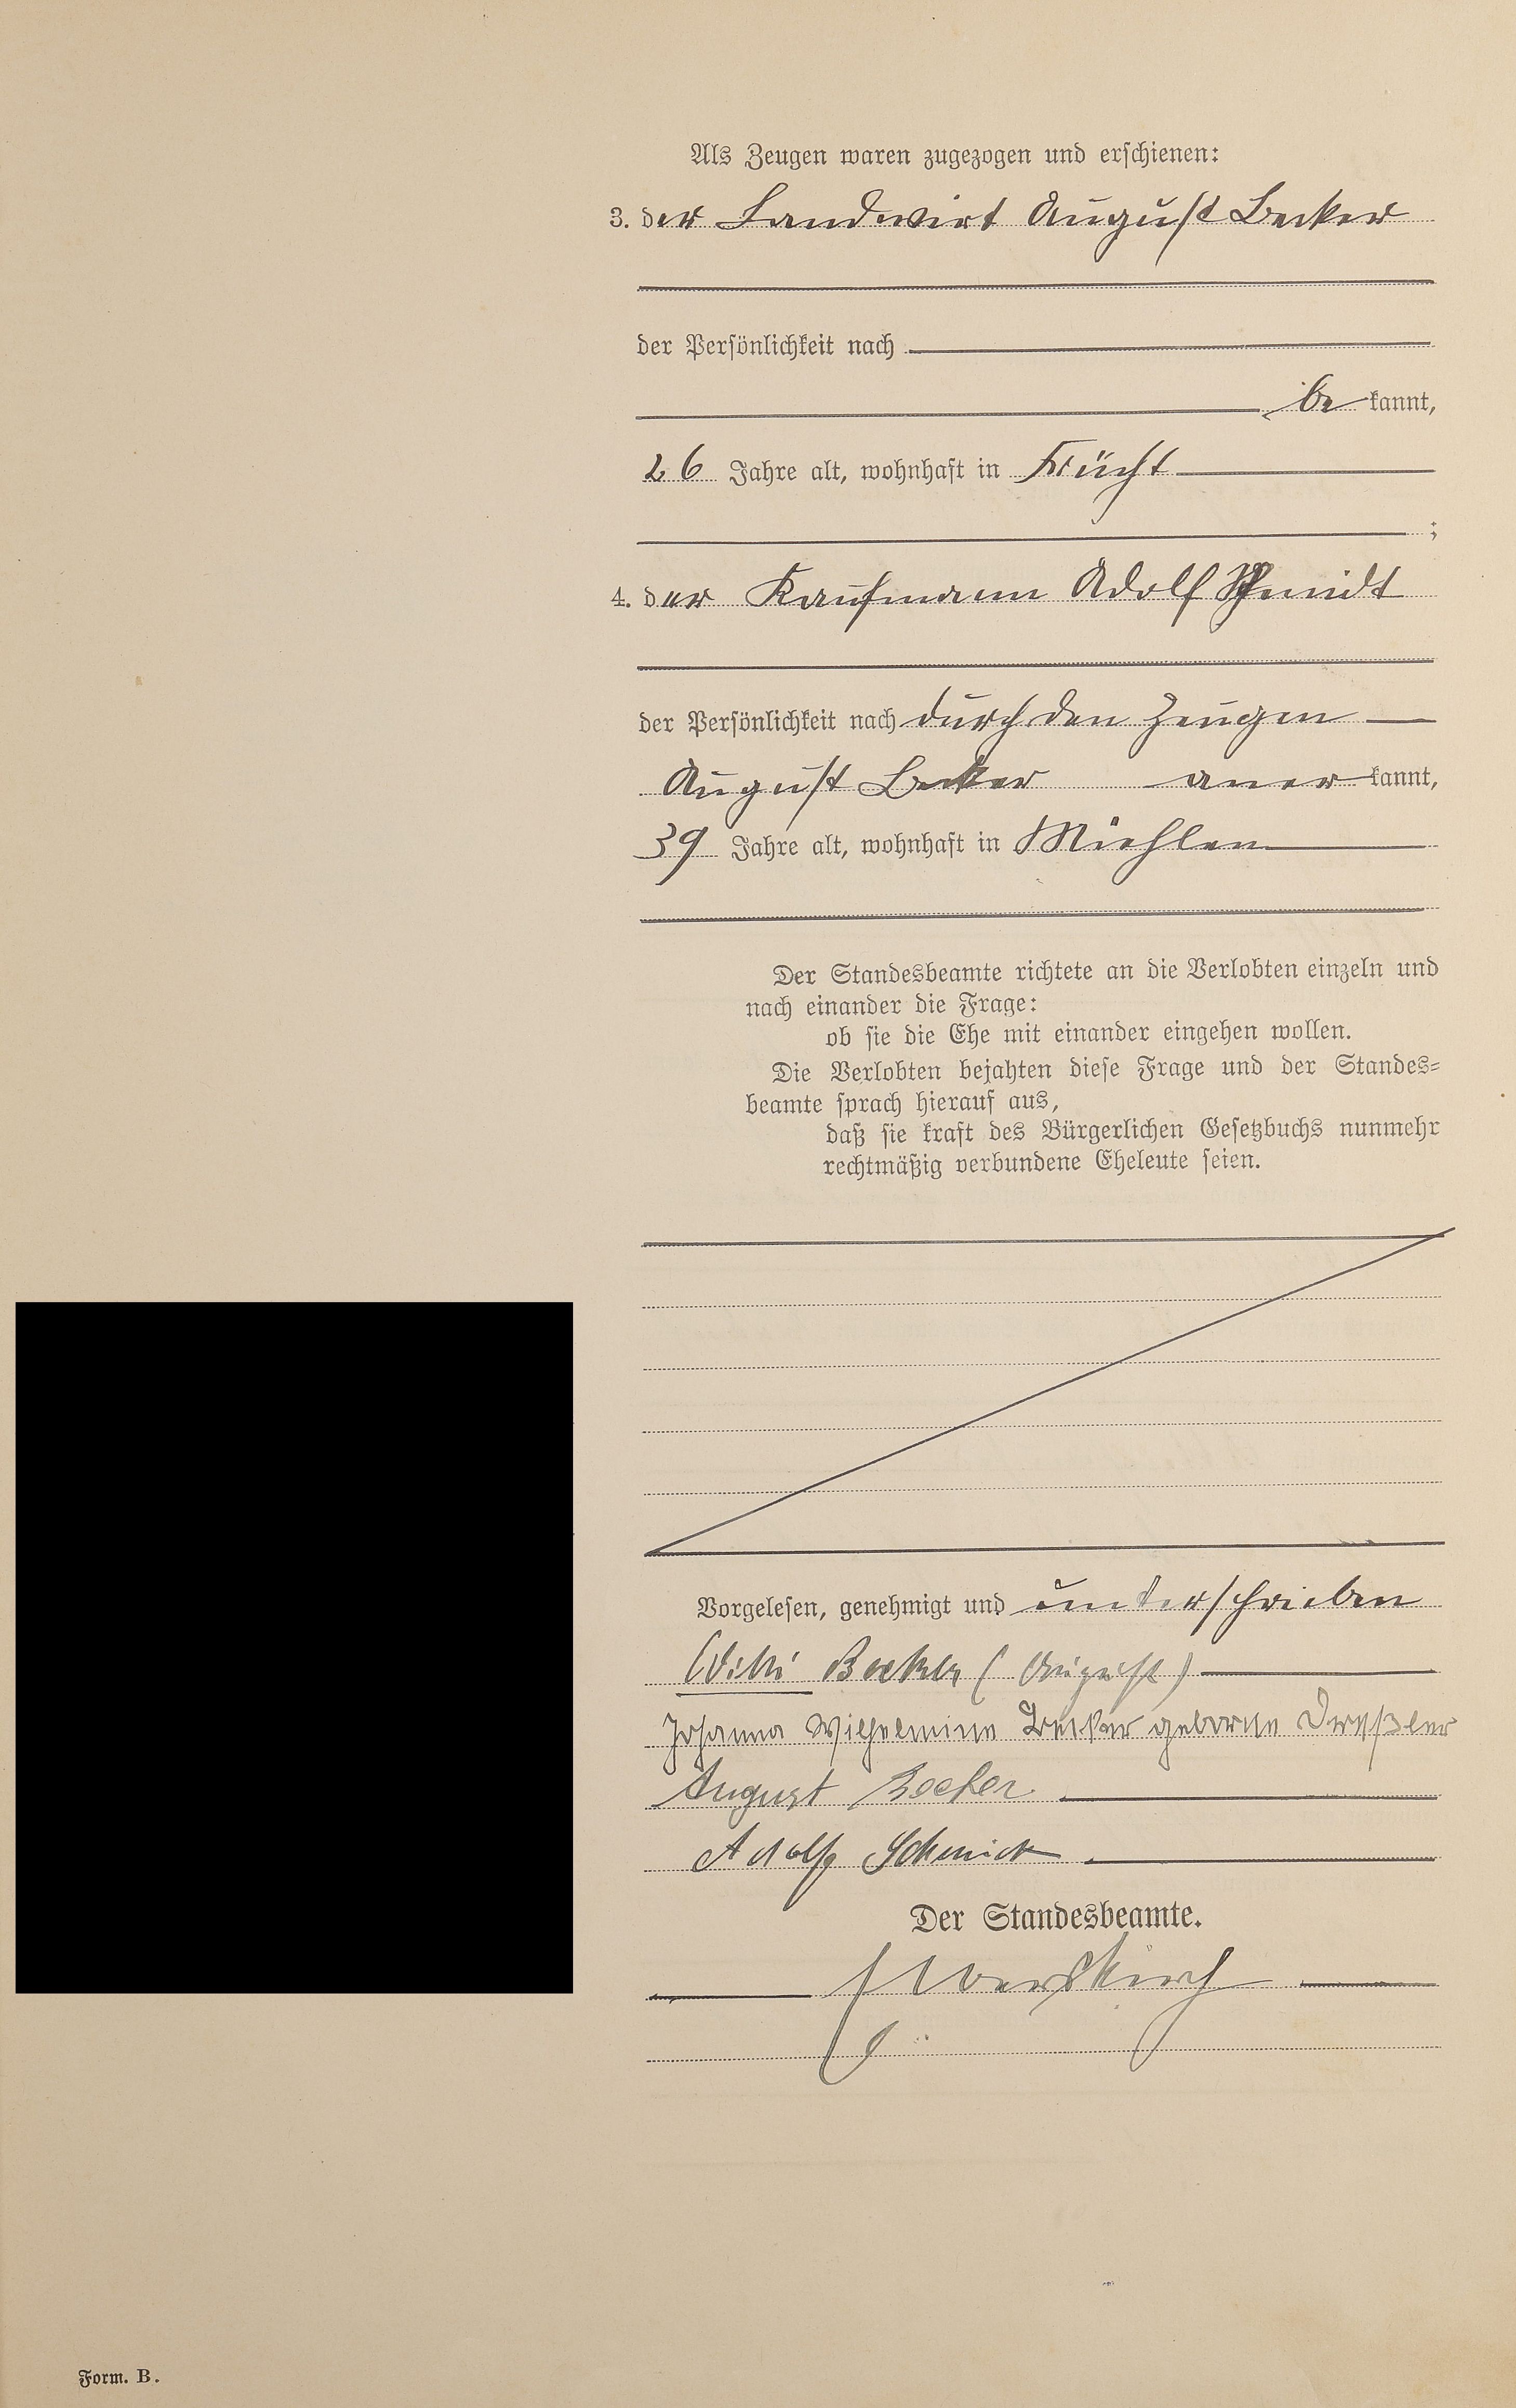 Als Zeugen waren zugezogen und erschienen:
3. der Landwirt August Becker
der Persönlichkeit nach
be kannt,
26 Jahre alt, wohnhaft in Frücht
;
4. der Kaufmann Adolf Schmidt
der Persönlichkeit nach durch den Zeugen
August Becker anerkannt,
39 Jahre alt, wohnhaft in Miehlen
Der Standesbeamte richtete an die Verlobten einzeln und
nach einander die Frage:
ob sie die Ehe mit einander eingehen wollen.
Die Verlobten bejahten diese Frage und der Standes=
beamte sprach hierauf aus,
daß sie kraft des Bürgerlichen Gesetzbuchs nunmehr
rechtmäßig verbundene Eheleute seien.
Vorgelesen, genehmigt und unterschrieben
Becker (August)
Johanna Wilhelmine Becker geborne Dreßler
August Becker
Adolf Schmidt
Der Standesbeamte.
Form. B.